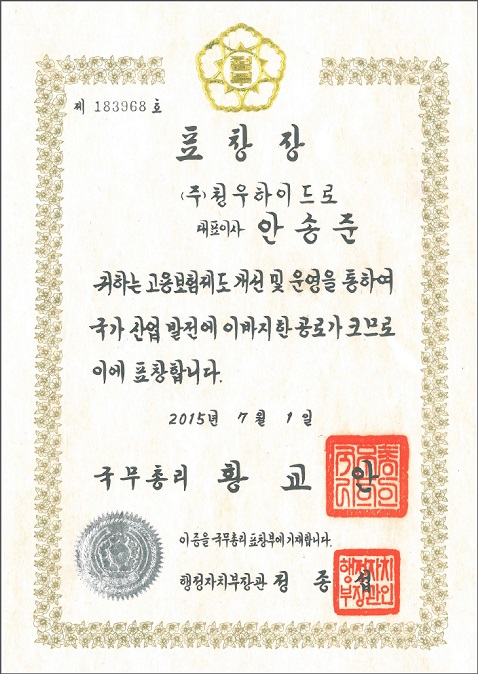 제 183968 호
표창장
(주)청우하이드로
대표이사 안송준
귀하는 고용보험제도 개선 및 운영을 통하여
국가 산업 발전에 이바지한 공로가 크므로
이에 표창합니다.
2015년 7월 1일
국무총리 황교안
이 증을 국무총리 표창부에 기재합니다.
행정자치부장관 정종섭
행정자치
부장관인